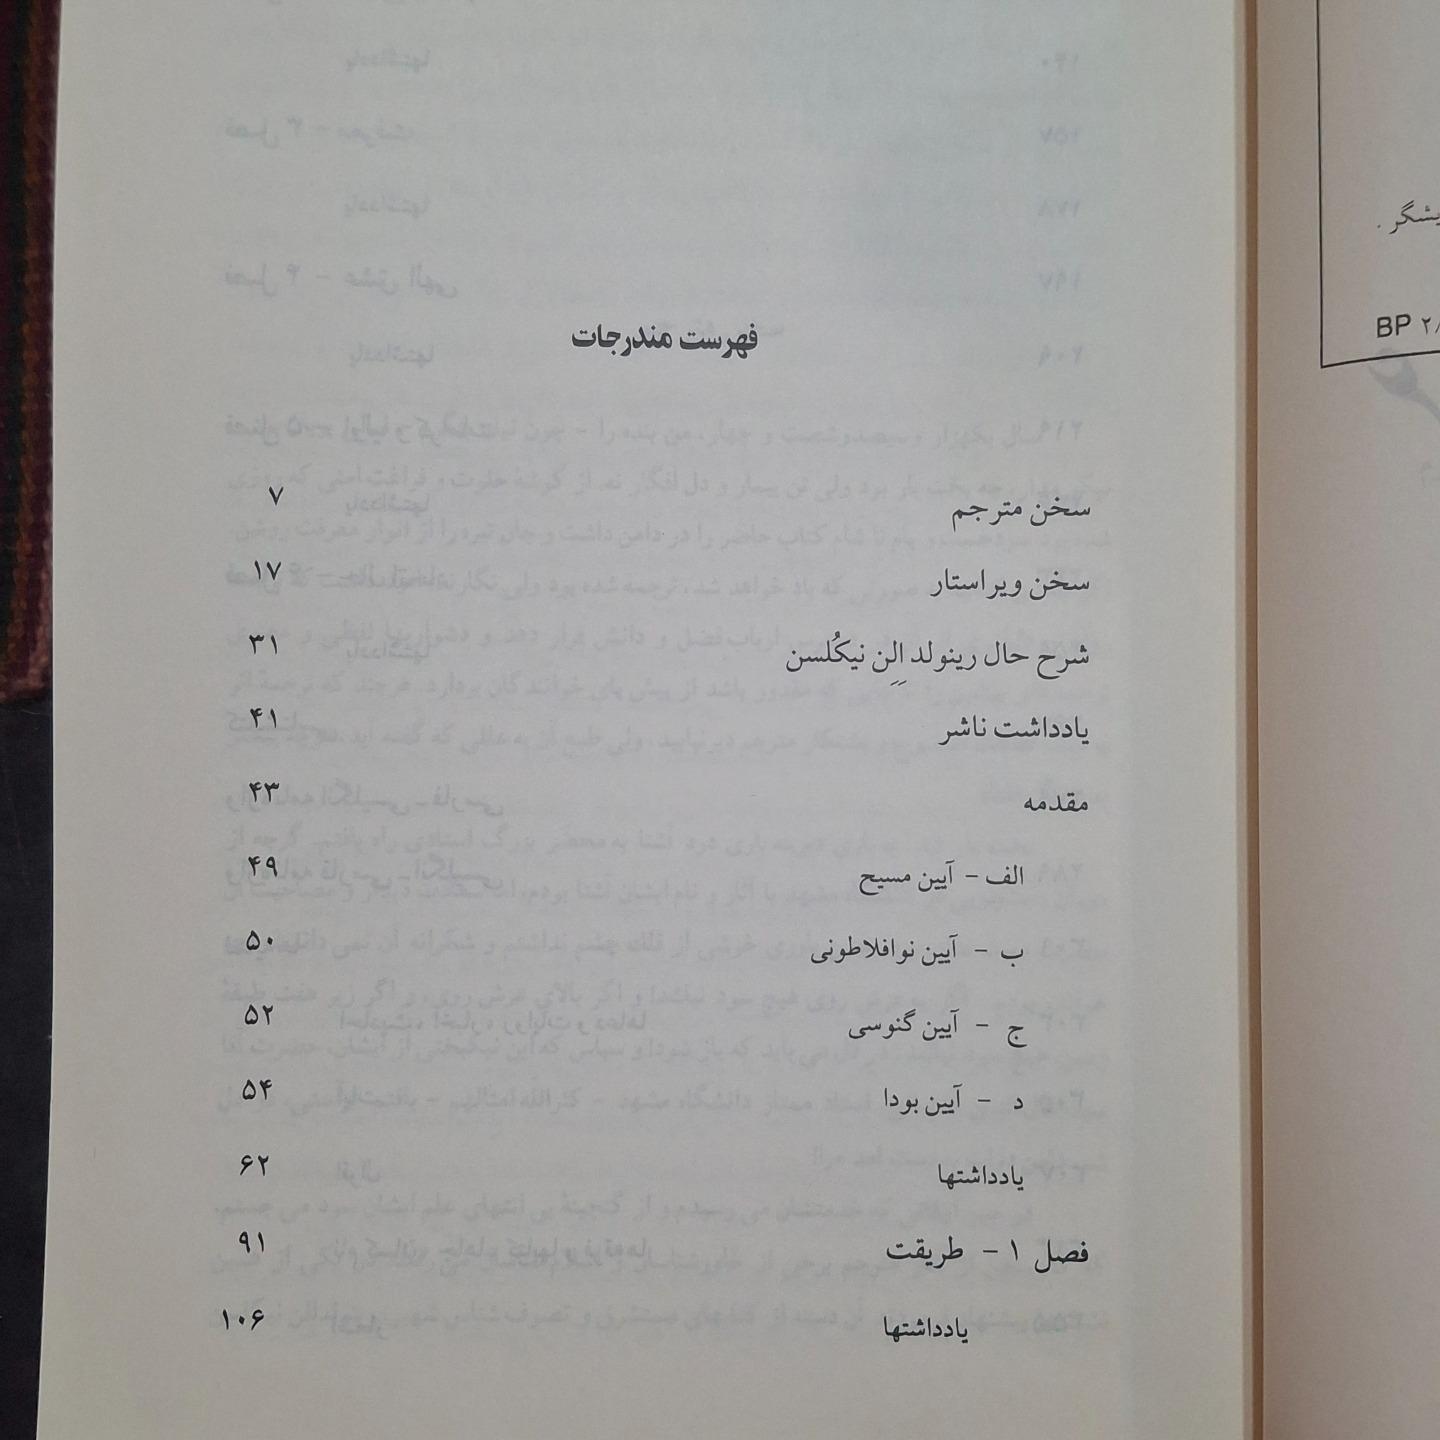 فهرست مندرجات
سخن مترجم ۷
سخن ویراستار ۱۷
شرح حال رینولد اِلِن نیکُلسن ۳۱
یادداشت ناشر ۴۱
مقدمه ۴۳
الف - آیین مسیح ۴۹
ب - آیین نوافلاطونی ۵۰
ج - آیین گنوسی ۵۲
د - آیین بودا ۵۴
یادداشتها ۶۲
فصل ۱ - طریقت ۹۱
یادداشتها ۱۰۶
BP